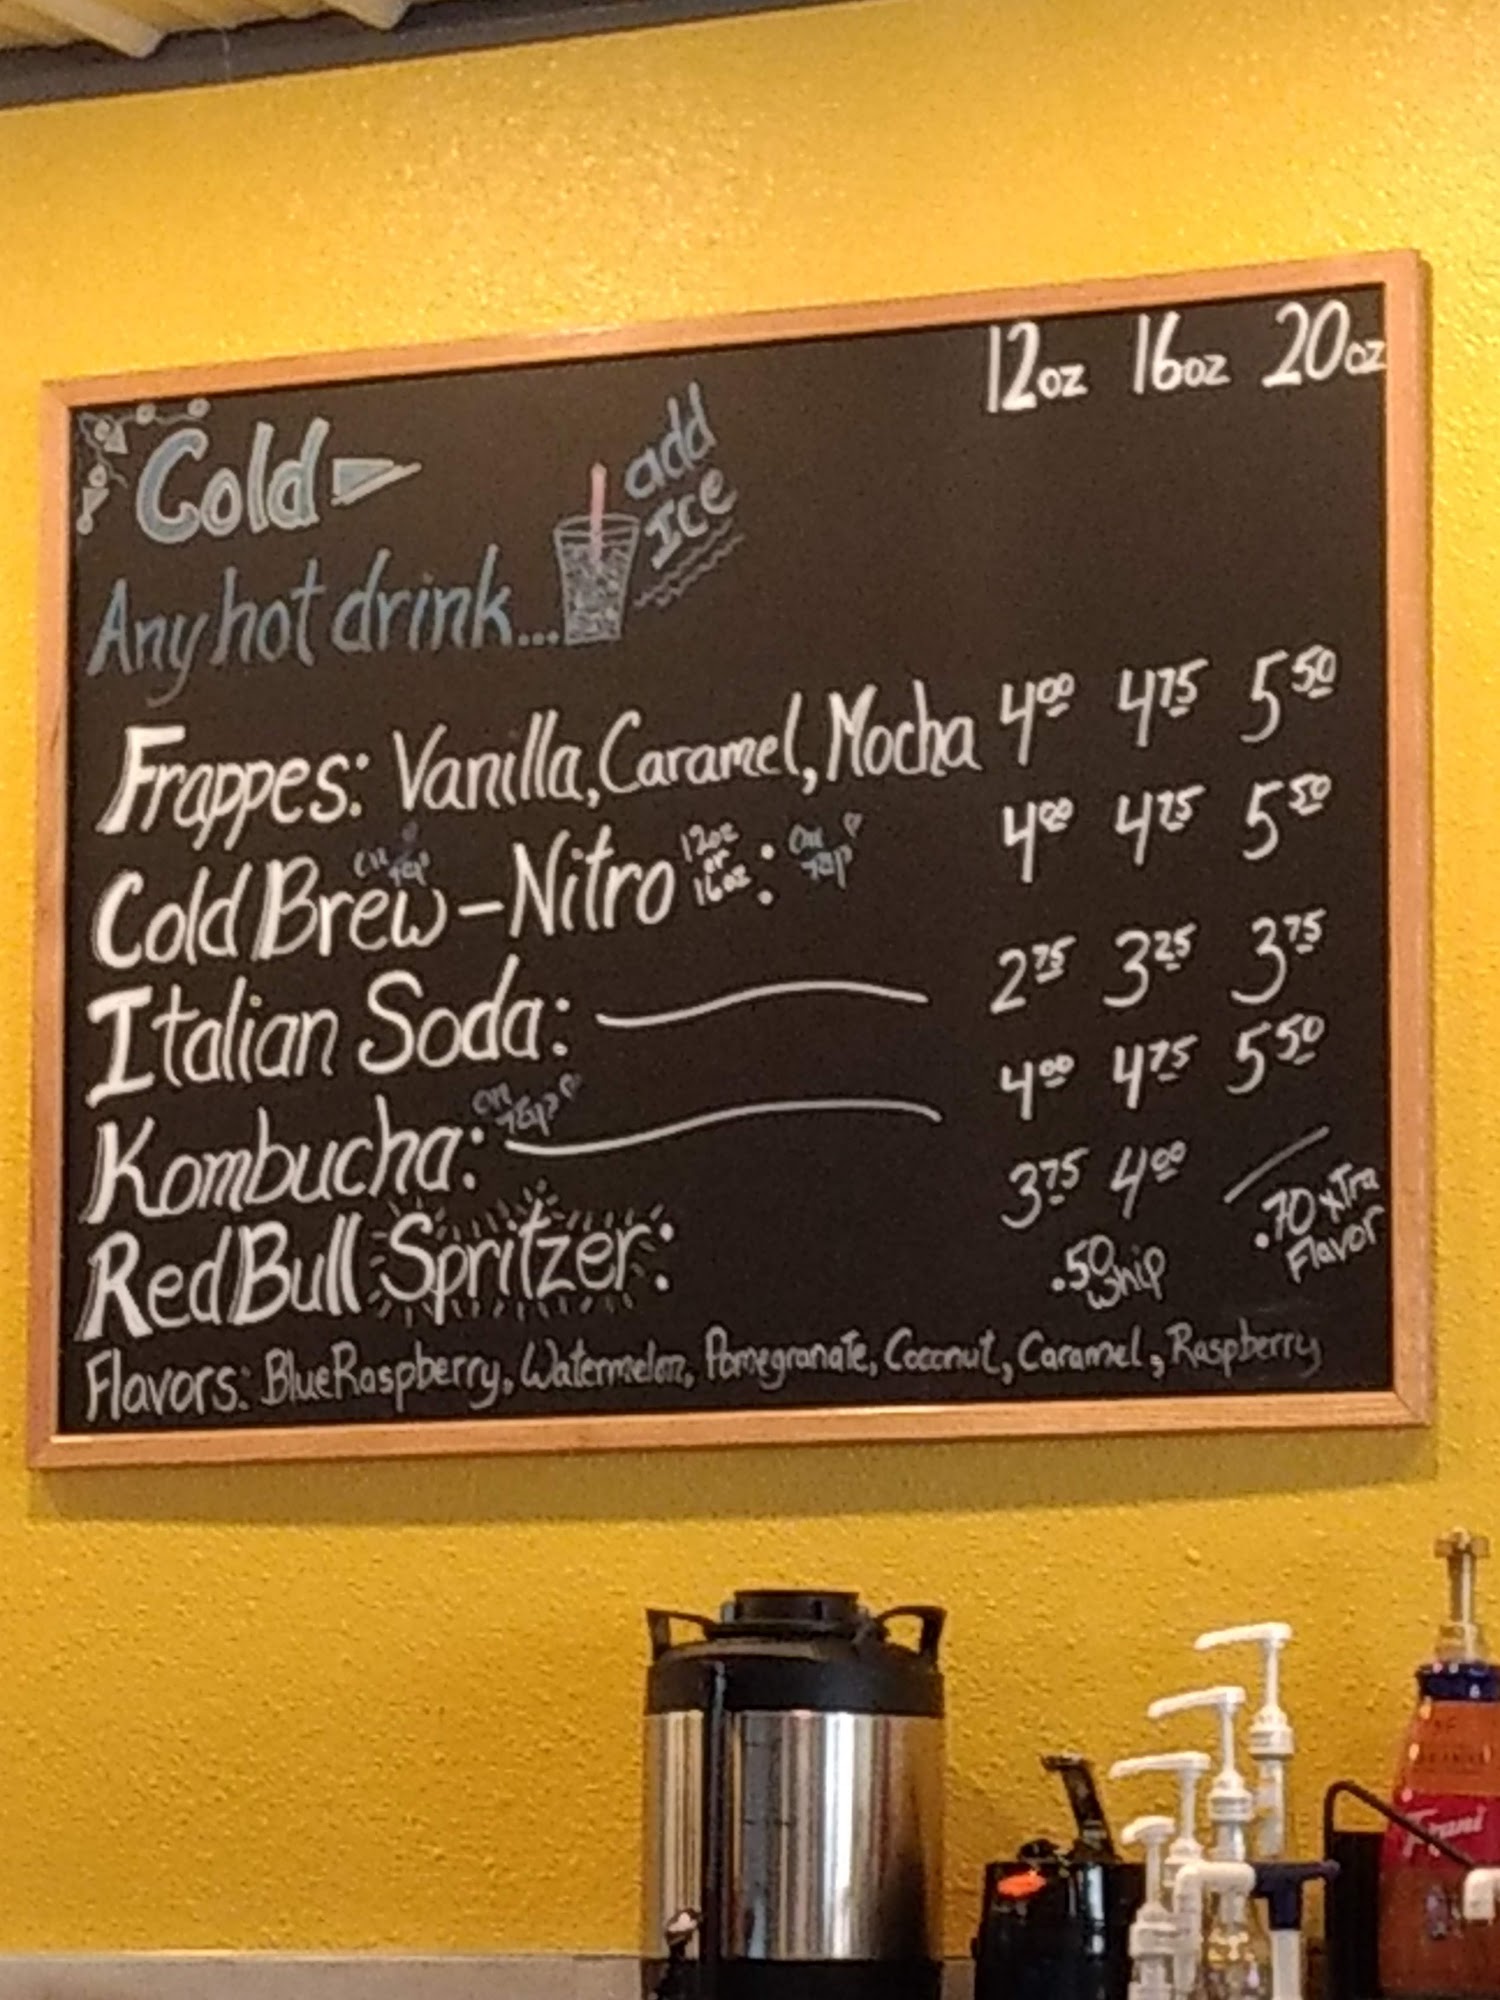 12oz 16oz 20oz
Cold
add
Ice
Any hot drink...
Frappes: Vanilla, Caramel, Mocha 4.00 4.75 5.50
Cold Brew - Nitro 12oz or 16oz : on Tap 4.00 4.75 5.50
on Tap
Italian Soda: 2.75 3.25 3.75
Kombucha: on Tap 4.00 4.75 5.50
Red Bull Spritzer: 3.75 4.00
.50 Whip
.70 xTra
Flavor
Flavors: Blue Raspberry, Watermelon, Pomegranate, Coconut, Caramel, Raspberry
Torani